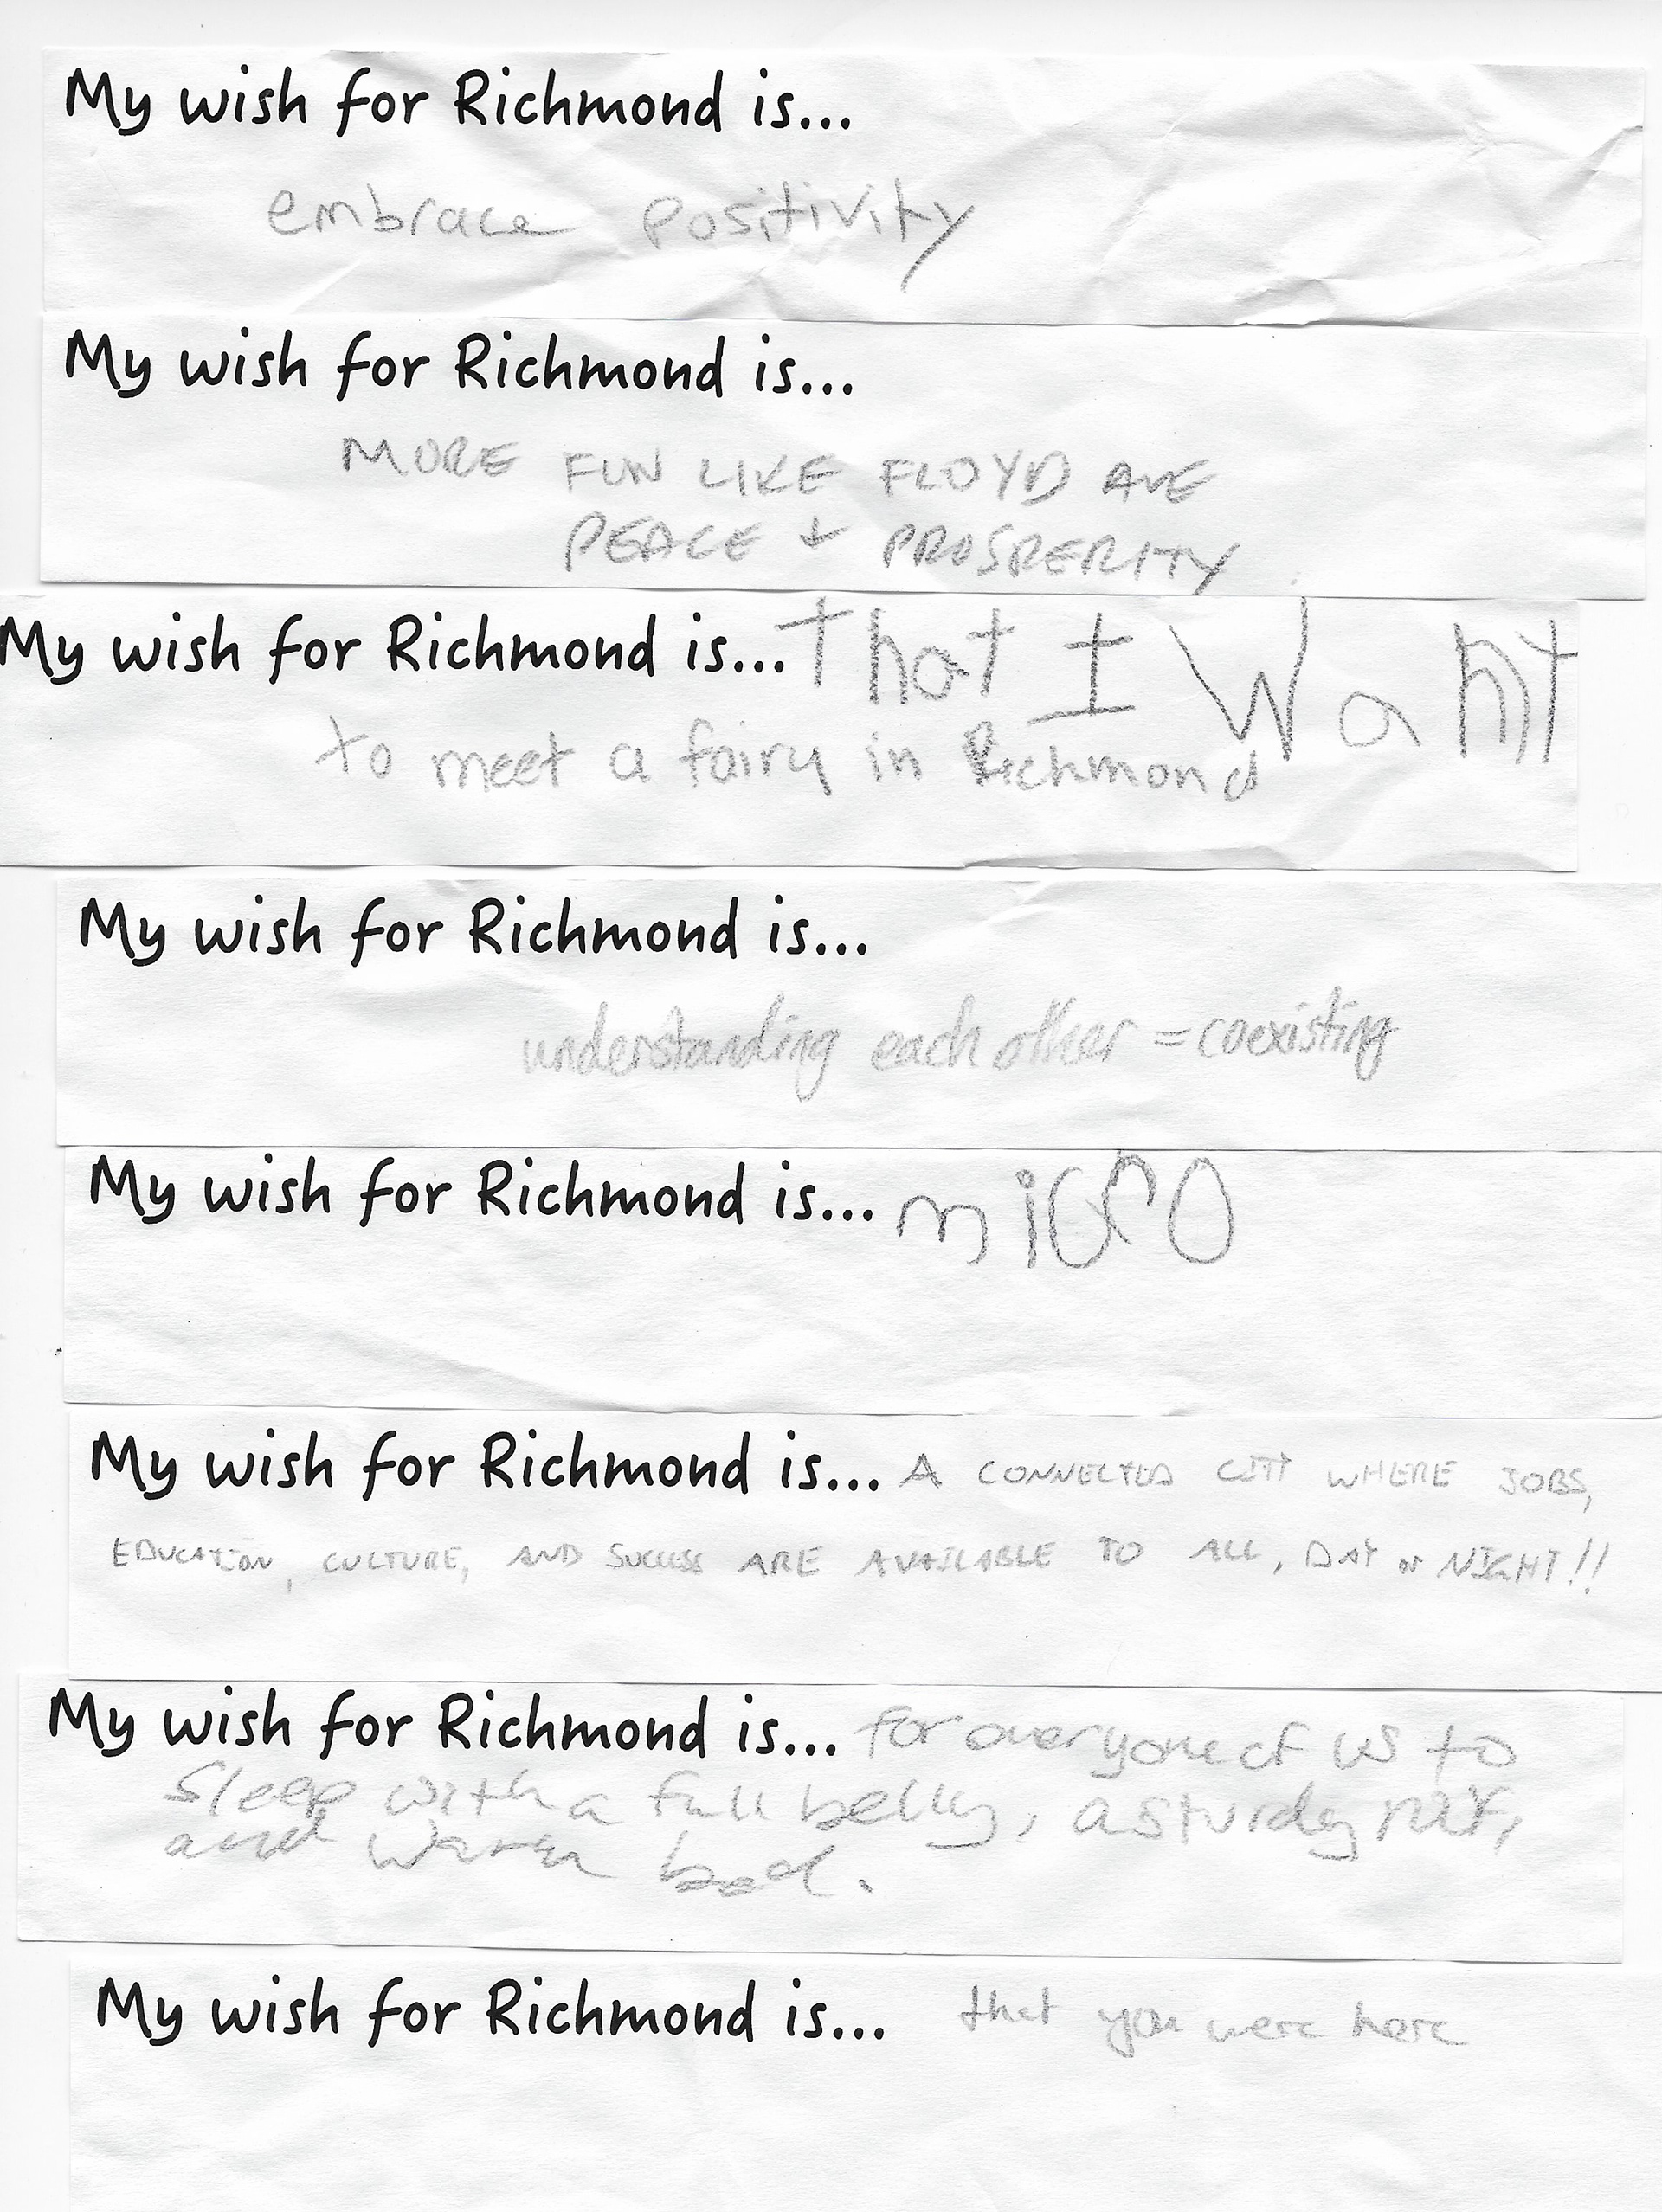 My wish for Richmond is...
embrace positivity
My wish for Richmond is...
MORE FUN LIKE FLOYD AVE
PEACE + PROSPERITY
My wish for Richmond is... that I Want
to meet a fairy in Richmond
My wish for Richmond is...
understanding each other = coexisting
My wish for Richmond is...
My wish for Richmond is... A CONNECTED CITY WHERE JOBS,
EDUCATION, CULTURE, AND SUCCESS ARE AVAILABLE TO ALL, DAY OR NIGHT!!
My wish for Richmond is... for everyone of us to
sleep with a full belly, a sturdy roof,
and warm bed.
My wish for Richmond is... that you were here